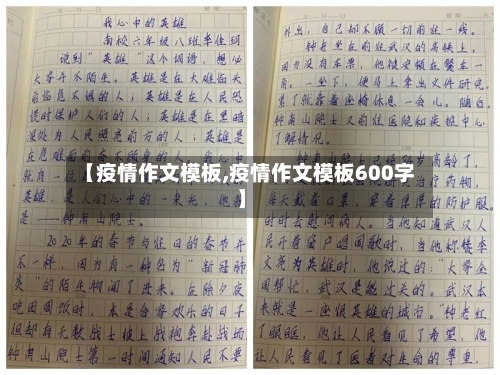 我心中的英雄
南校六年级八班李佳珂
说到“英雄”这个词语，想必
大家并不陌生。英雄是在大难临头
前临危不惧的人；英雄是在人民恐
慌时保护人们的人；英雄是在黑暗
深处为人民照亮前方的人；英雄是
在危难面前
就是一位
英雄，是人们心中的一束光，他就
是——钟南山院士。
2020年的春节与往日的春节并
不一样，因为有一种名为“新冠肺
炎”的陌生物闯了进来。在除夕夜
吃团圆饭时，本是合家欢乐的日子
但却有无数战士披上战袍奔赴战场
钟南山院士第一时间通知人民不要
外出，自己却不顾一切前往一线。
钟老坐在前往武汉的高铁上，
因为没有车票，他被安顿在餐车一
角。一坐下，便马上拿出文件研究，
累了就靠着座椅休息一会儿。随后，
钟南山院士又前往医院和疾控中心
了解情况。
高龄了，
疗药物，
每天戴着口罩，穿着厚厚的防护服，
时时去慰问病人。当他知道武汉人
民开着窗户唱国歌时，当他称赞李
文亮为英雄时，他说过的：“大家全
国帮忙，武汉是能过关的。武汉本
来就是一座很英雄的城市。”钟老红
了眼眶，他让人民看见了希望，他
让人民看见了医者对生命的尊重，
【疫情作文模板,疫情作文模板600字
】